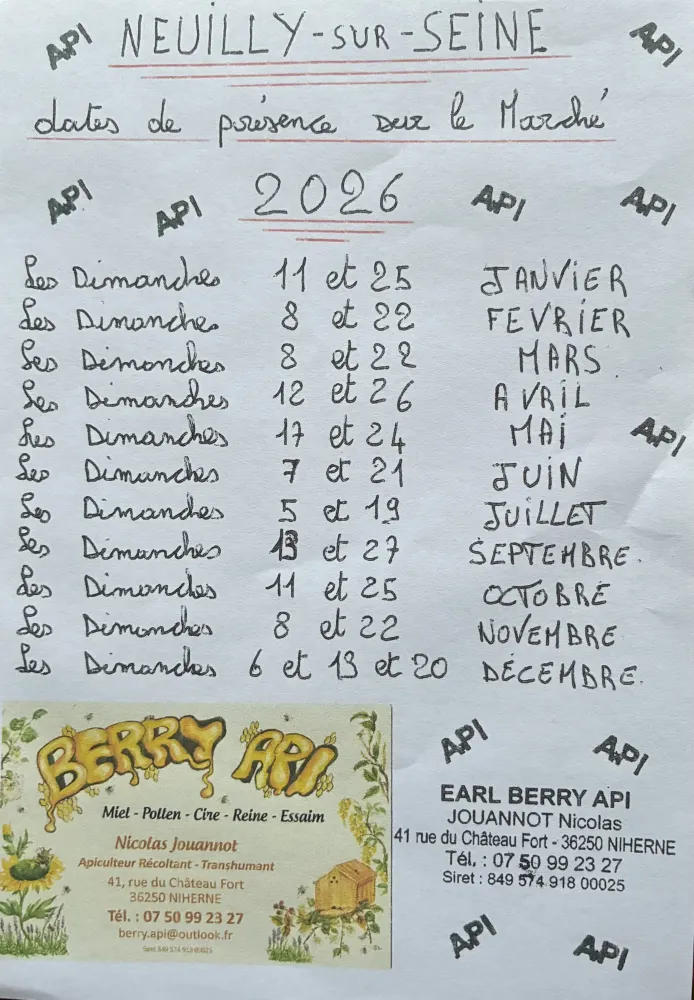 API NEUILLY-SUR-SEINE API
dates de présence sur le Marché
API API 2026 API API
Les Dimanches 11 et 25 JANVIER
Les Dimanches 8 et 22 FEVRIER
Les Dimanches 8 et 22 MARS
Les Dimanches 12 et 26 AVRIL
Les Dimanches 17 et 24 MAI API
Les Dimanches 7 et 21 JUIN
Les Dimanches 5 et 19 JUILLET
Les Dimanches 13 et 27 SEPTEMBRE.
Les Dimanches 11 et 25 OCTOBRE
Les Dimanches 8 et 22 NOVEMBRE
Les Dimanches 6 et 13 et 20 DÉCEMBRE.
BERRY API
Miel - Pollen - Cire - Reine - Essaim
Nicolas Jouannot
Apiculteur Récoltant - Transhumant
41, rue du Château Fort
36250 NIHERNE
Tél. : 07 50 99 23 27
berry.api@outlook.fr
Siret 849 574 918 00025
API API
EARL BERRY API
JOUANNOT Nicolas
41 rue du Château Fort - 36250 NIHERNE
Tél. : 07 50 99 23 27
Siret : 849 574 918 00025
API API